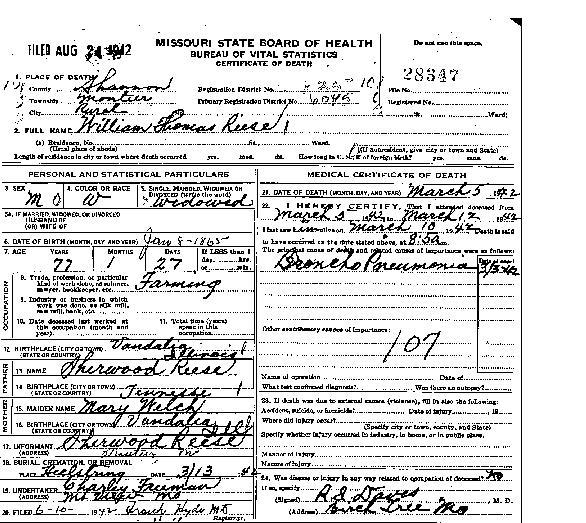 FILED AUG 24 1942
MISSOURI STATE BOARD OF HEALTH
BUREAU OF VITAL STATISTICS
CERTIFICATE OF DEATH
Do not use this space.
28347
1. PLACE OF DEATH
County Shannon Registration District No. File No.
Township Montier Primary Registration District No. Registered No.
City Rural St. Ward)
2. FULL NAME William Thomas Reese
(a) Residence, No. St. Ward.
(Usual place of abode) (If nonresident, give city or town and State)
Length of residence in city or town where death occurred yrs. mos. ds. How long in U. S., if of foreign birth? yrs. mos. ds.
PERSONAL AND STATISTICAL PARTICULARS
3. SEX M 4. COLOR OR RACE W 5. SINGLE, MARRIED, WIDOWED OR DIVORCED (write the word) Widowed
5A. IF MARRIED, WIDOWED, OR DIVORCED
HUSBAND OF
(OR) WIFE OF
6. DATE OF BIRTH (MONTH, DAY, AND YEAR) Jan 8 - 1865
7. AGE YEARS 77 MONTHS 1 DAYS 27 If LESS than 1 day, hrs. or min.
OCCUPATION
8. Trade, profession, or particular kind of work done, as spinner, sawyer, bookkeeper, etc. Farming
9. Industry or business in which work was done, as silk mill, saw mill, bank, etc.
10. Date deceased last worked at this occupation (month and year)
11. Total time (years) spent in this occupation
12. BIRTHPLACE (CITY OR TOWN) Vandalia
(STATE OR COUNTRY) Illinois
FATHER
13. NAME Sherwood Reese
14. BIRTHPLACE (CITY OR TOWN)
(STATE OR COUNTRY) Tennesse
MOTHER
15. MAIDEN NAME Mary Welch
16. BIRTHPLACE (CITY OR TOWN) Vandalia
(STATE OR COUNTRY) Ill
17. INFORMANT Sherwood Reese
(ADDRESS)
18. BURIAL, CREMATION, OR REMOVAL
PLACE DATE 3/13 42
19. UNDERTAKER Charley Freeman
(ADDRESS) Mo
20. FILED 6-10- 1942 Registrar.
MEDICAL CERTIFICATE OF DEATH
21. DATE OF DEATH (MONTH, DAY, AND YEAR) March 5 1942
22. I HEREBY CERTIFY, That I attended deceased from
March 5 1942 March 12 1942
I last saw alive on March 10 1942 Death is said
to have occurred on the date stated above, at
The principal cause of death and related causes of importance were as follows: Date of onset
Broncho Pneumonia 3/3/42
Other contributory causes of importance:
107
Name of operation Date of
What test confirmed diagnosis? Was there an autopsy?
23. If death was due to external causes (violence), fill in also the following:
Accident, suicide, or homicide? Date of injury 19
Where did injury occur?
(Specify city or town, county, and State)
Specify whether injury occurred in industry, in home, or in public place.
Manner of injury
Nature of injury
24. Was disease or injury in any way related to occupation of deceased? no
If so, specify
(Signed) R. S. Davis M. D.
(Address) Birch Tree Mo